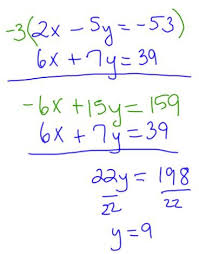 -3(2x - 5y = -53)
6x + 7y = 39
-6x + 15y = 159
6x + 7y = 39
22y = 198
22 22
y = 9